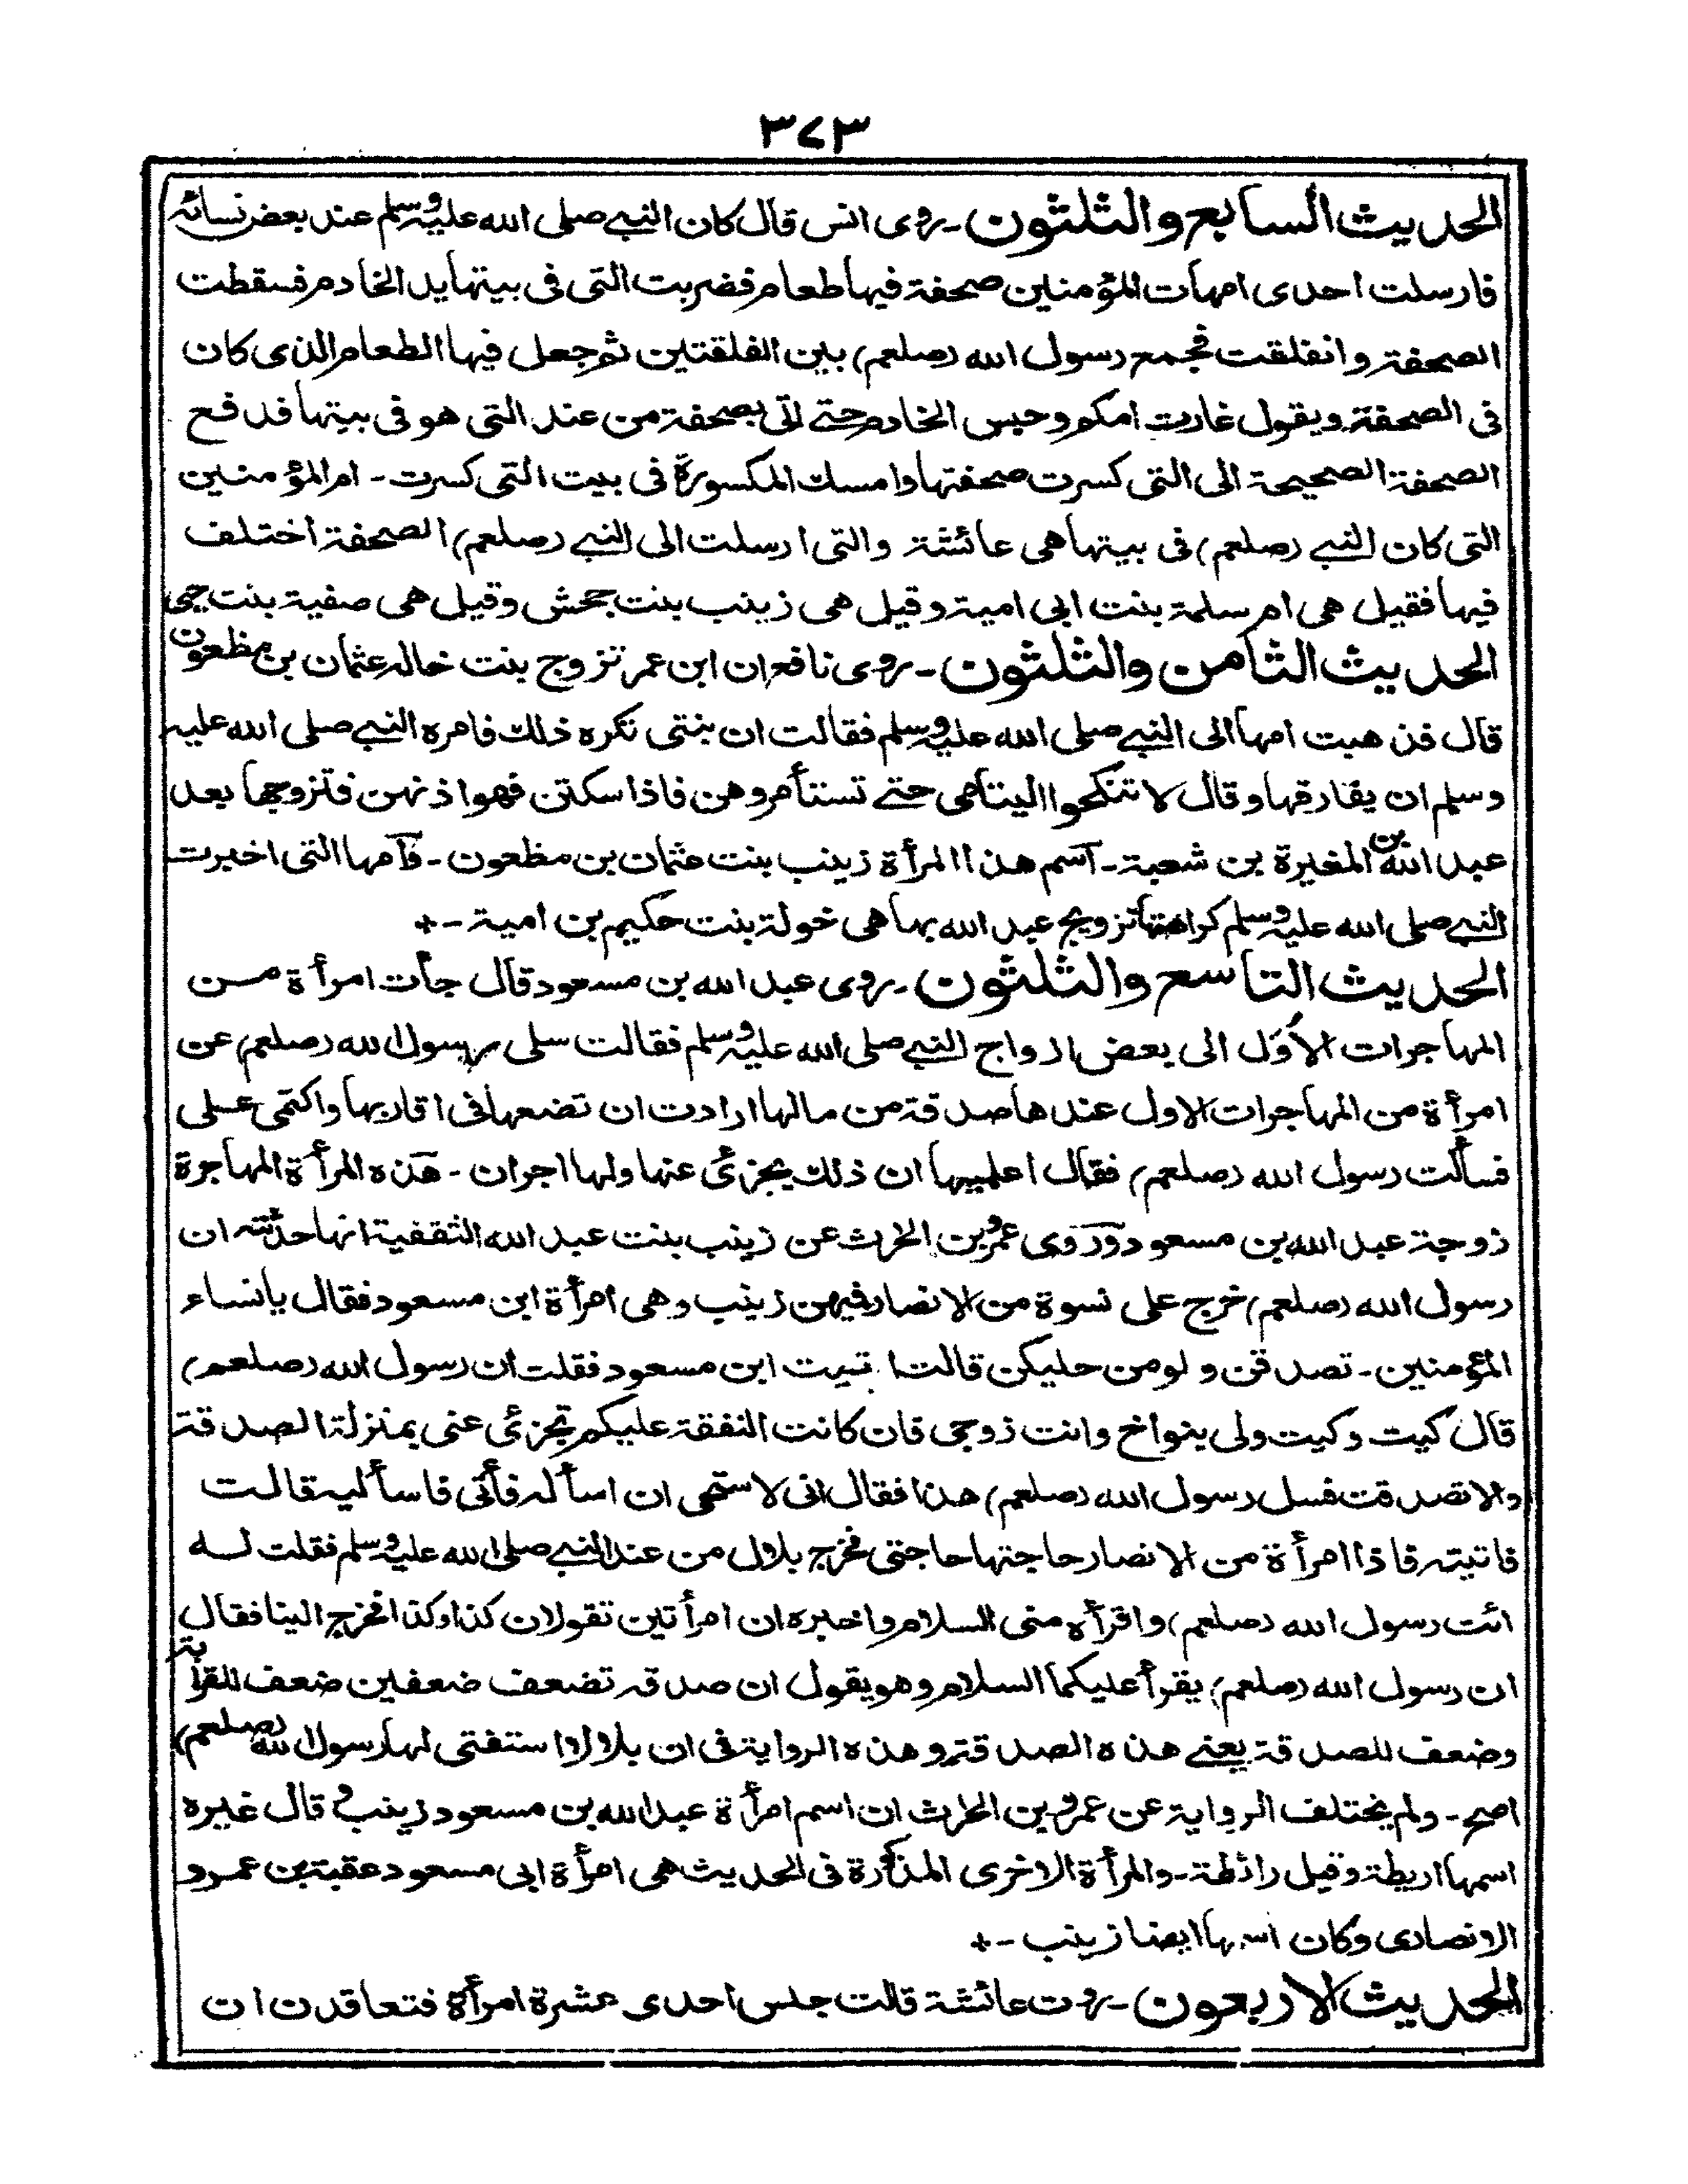 ٣٧٣
الحديث السابع والثلثون - روى انس قال كان النبي صلى الله عليه وسلم عند بعض نسائه
فارسلت احدى امهات المؤمنين صحفة فيها طعام فضربت التى فى بيتها يد الخادم فسقطت
الصحفة وانفلقت فجمع رسول الله (صلعم) بين الفلقتين ثم جعل فيها الطعام الذى كان
فى الصحفة ويقول غارت امكم وحبس الخادم حتے اتى بصحفة من عند التى هو فى بيتها فدفع
الصحفة الصحيحة الى التى كسرت صحفتها وامسك المكسورة فى بيت التى كسرت - ام المؤمنين
التى كان النبے (صلعم) فى بيتها هى عائشة والتى ارسلت الى النبے (صلعم) الصحفة اختلف
فيها فقيل هى ام سلمة بنت ابى امية وقيل هى زينب بنت جحش وقيل هى صفية بنت حيى
الحديث الثامن والثلثون - روى نافع ان ابن عمر تزوج بنت خاله عثمان بن مظعون
قال فذهبت امها الى النبے صلى الله عليه وسلم فقالت ان بنتى تكره ذلك فامره النبے صلى الله عليه
وسلم ان يفارقها وقال لا تنكحوا اليتامى حتے تستأمروهن فاذا سكتن فهو اذنهن فتزوجها بعد
عبد الله بن المغيرة بن شعبة - اسم هذا المرأة زينب بنت عثمان بن مظعون - فآمها التى اخبرت
النبے صلى الله عليه وسلم كراهتها تزويج عبد الله بها هى خولة بنت حكيم بن امية -+
الحديث التاسع والثلثون - روى عبد الله بن مسعود قال جأت امرأة من
المهاجرات الأول الى بعض ازواج النبے صلى الله عليه وسلم فقالت سلى رسول الله (صلعم) عن
امرأة من المهاجرات الاول عندها صدقة من مالها ارادت ان تضعها فى اقاربها واكتمى على
فسألت رسول الله (صلعم) فقال اعلميها ان ذلك يجزئ عنها ولها اجران - هذه المرأة المهاجرة
زوجة عبد الله بن مسعود وروى عمرو بن الحرث عن زينب بنت عبد الله الثقفية انها حدثته ان
رسول الله (صلعم) خرج على نسوة من الانصار فيهن زينب وهى امرأة ابن مسعود فقال يا نساء
المؤمنين - تصدقن ولو من حليكن قالت اتيت ابن مسعود فقلت ان رسول الله (صلعم)
قال كيت وكيت ولى بنو اخ وانت زوجى فان كانت النفقة عليكم تجزئ عنى بمنزلة الصدقة
والا تصدقت فسل رسول الله (صلعم) هذا فقال انى لاستحى ان اسأله فأتى فاسأليه قالت
فاتيته فاذا امرأة من الانصار حاجتها حاجتى فخرج بلال من عند النبے صلى الله عليه وسلم فقلت له
ائت رسول الله (صلعم) واقرأه منى السلام واخبره ان امرأتين تقولان كذا وكذا فخرج الينا فقال
ان رسول الله (صلعم) يقرأ عليكما السلام وهو يقول ان صدقه تضعف ضعفين ضعف للقرابة
وضعف للصدقة يعنے هذه الصدقة وهذه الرواية فى ان بلالا استفتى لها رسول الله (صلعم)
اصح - ولم يختلف الرواية عن عمرو بن الحرث ان اسم امرأة عبد الله بن مسعود زينب وقال غيره
اسمها اريطة وقيل رائطة - والمرأة الاخرى المذكورة فى الحديث هى امرأة ابى مسعود عقبة بن عمرو
الانصارى وكان اسمها ايضا زينب -+
الحديث الاربعون - روت عائشة قالت جلس احدى عشرة امرأة فتعاقدن ان